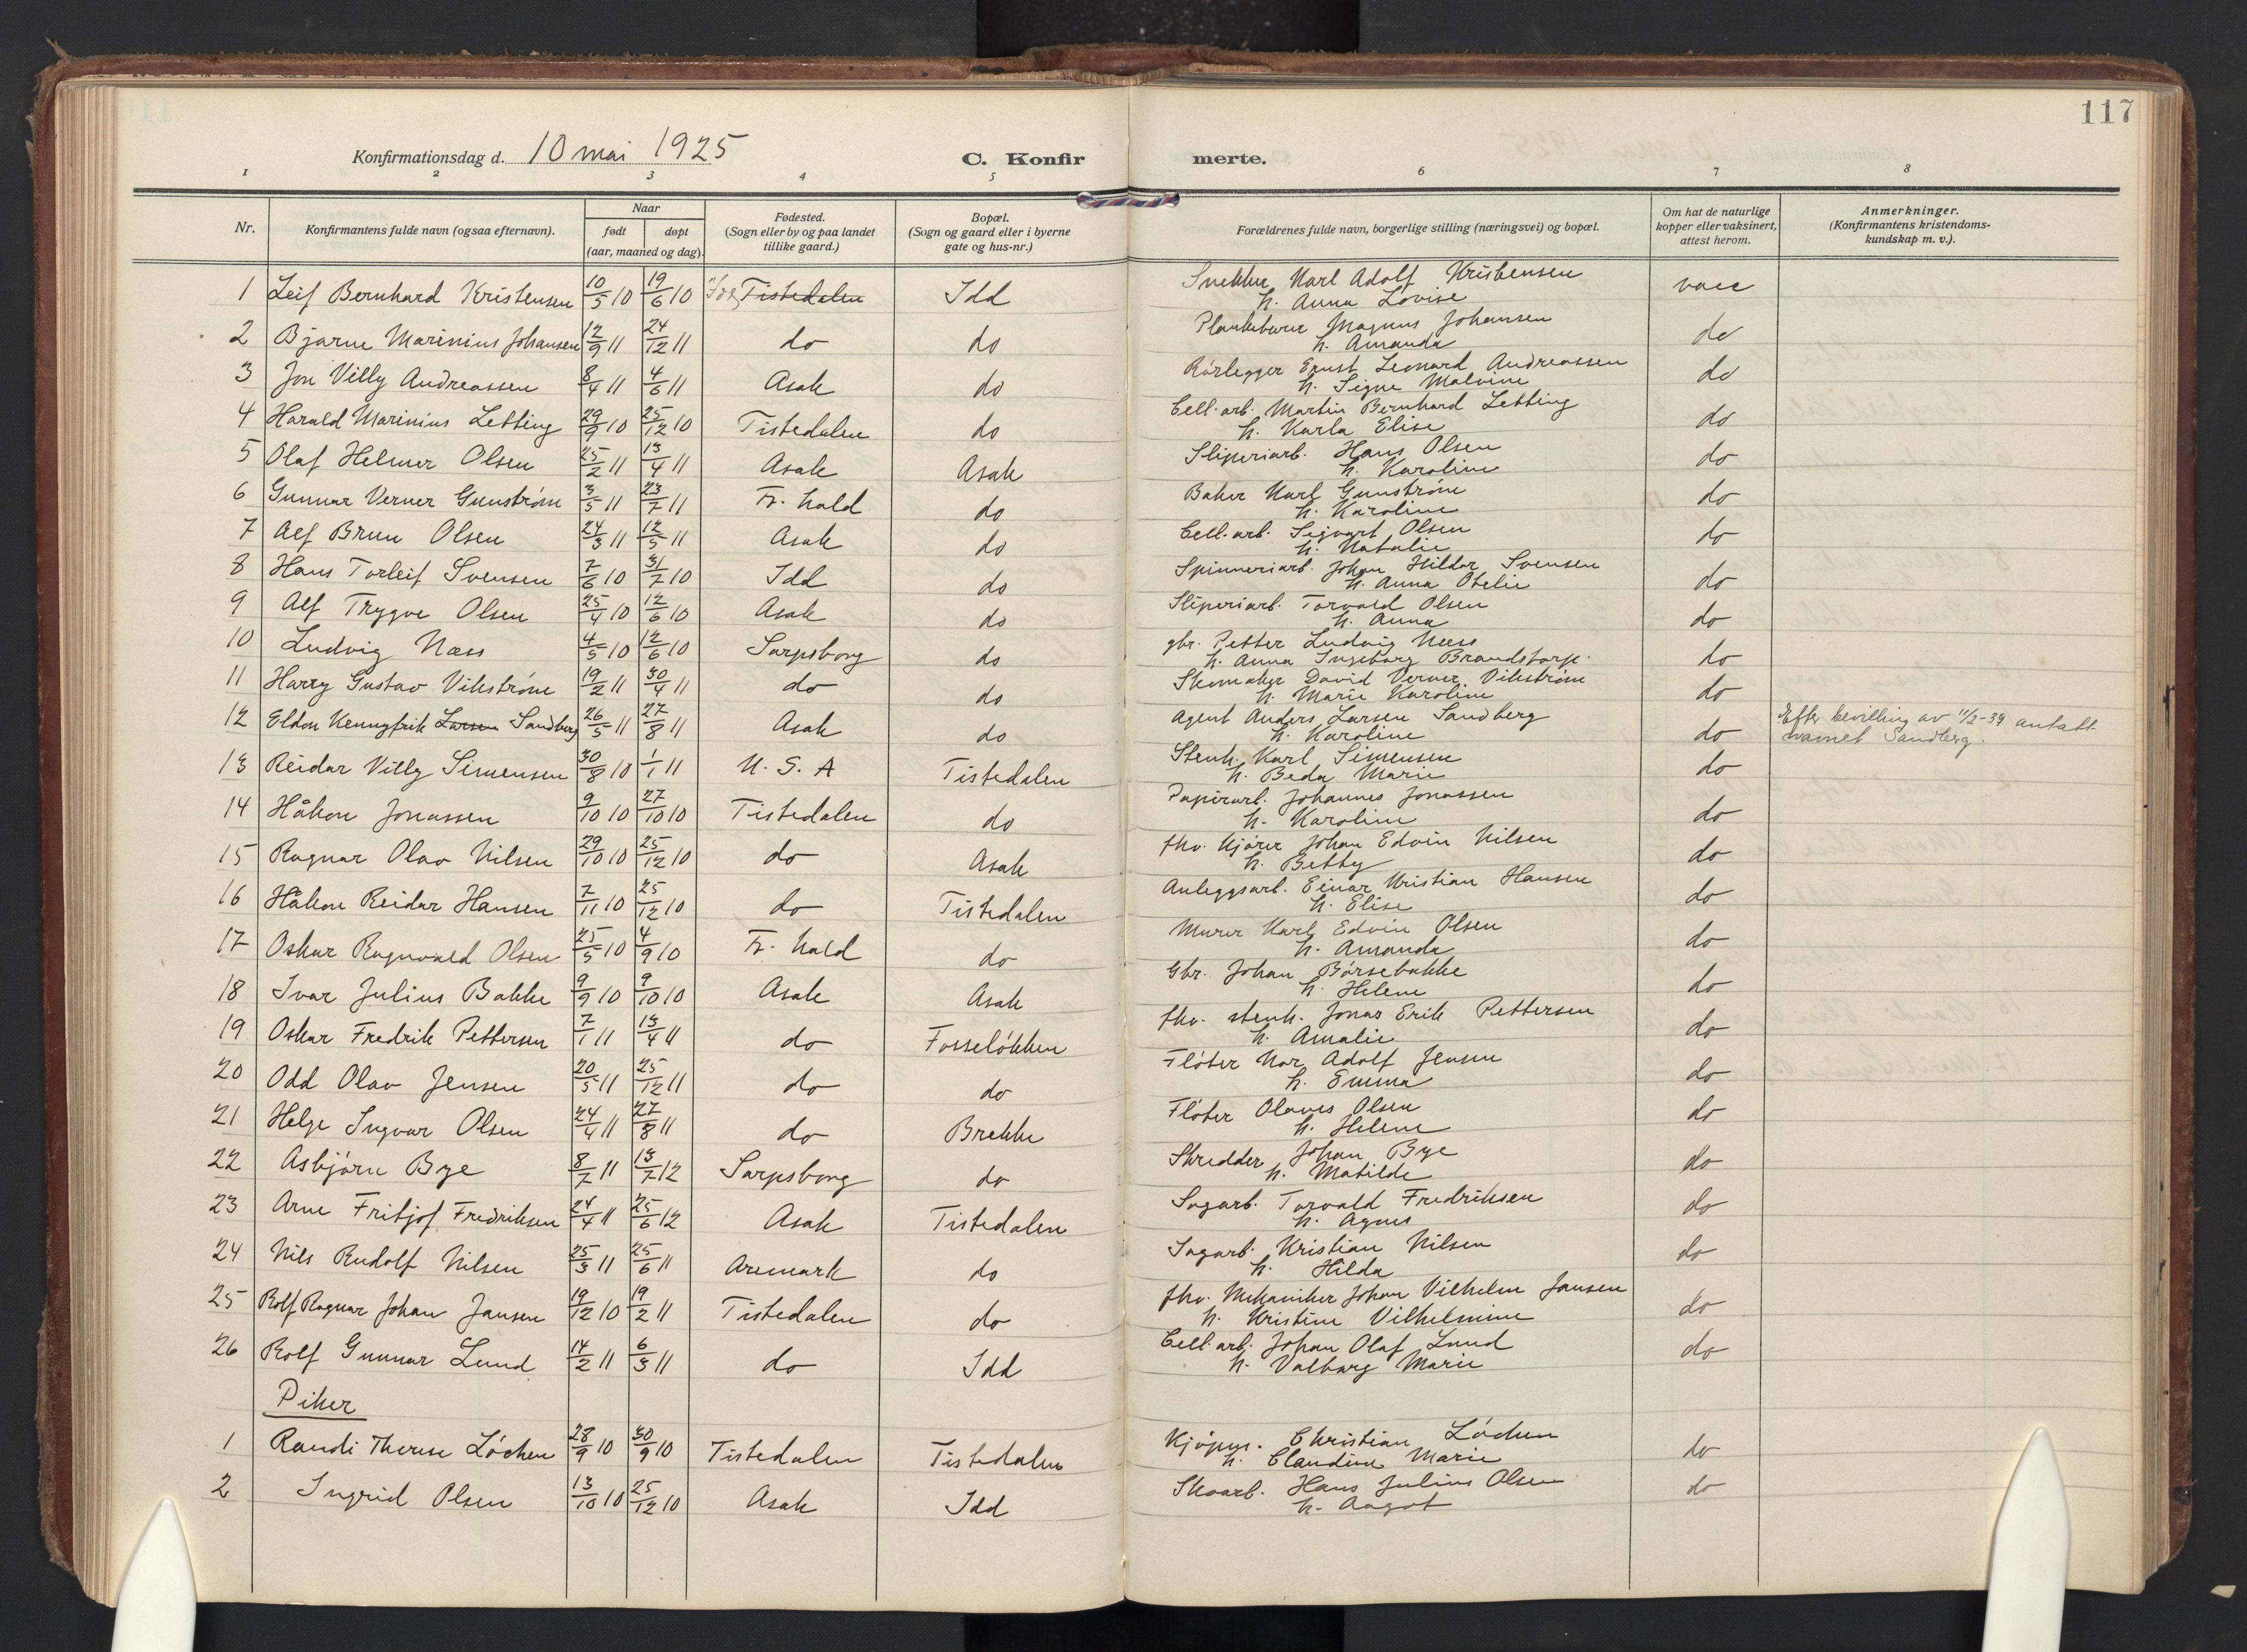 117
Konfirmationsdag d. 10 mai 1925 C. Konfir merte.
1 2 3 4 5 6 7 8
Nr. Konfirmantens fulde navn (ogsaa efternavn). Naar født døpt (aar, maaned og dag). Fødested. (Sogn eller by og paa landet tillike gaard.) Bopæl. (Sogn og gaard eller i byerne gate og hus-nr.) Forældrenes fulde navn, borgerlige stilling (næringsvei) og bopæl. Om hat de naturlige kopper eller vaksinert, attest herom. Anmerkninger. (Konfirmantens kristendoms-kundskap m. v.).
1 Leif Bernhard Kristensen 10/5 10 19/6 10 Tistedalen Idd Snekker Karl Adolf Kristensen vacc
h. Anna Lovise
2 Bjarne Marinius Johansen 12/9 11 24/12 11 do do Plankebærer Magnus Johansen do
h. Amanda
3 Jon Villy Andreassen 8/4 11 4/6 11 Asak do Rørlegger Ernst Leonard Andreassen do
h. Signe Malvine
4 Harald Marinius Letting 29/9 10 25/12 10 Tistedalen do Cell.arb. Martin Bernhard Letting do
h. Karla Elise
5 Olaf Helmer Olsen 25/2 11 13/4 11 Asak Asak Sliperiarb. Hans Olsen do
h. Karoline
6 Gunnar Verner Gunstrøm 3/5 11 23/7 11 Fr. hald do Baker Karl Gunstrøm do
h. Karoline
7 Alf Brun Olsen 24/3 11 12/5 11 Asak do Cell.arb. Sigvart Olsen do
h. Natalie
8 Hans Torleif Svensen 7/6 10 31/7 10 Idd do Spinneriarb. Johan Hildor Svensen do
h. Anna Otelie
9 Alf Trygve Olsen 25/4 10 12/6 10 Asak do Sliperiarb. Torvald Olsen do
h. Anna
10 Ludvig Næss 4/5 10 12/6 10 Sarpsborg do gbr. Petter Ludvig Næss do
h. Anna Ingeborg Brandstorp.
11 Harry Gustav Vikstrøm 19/2 11 30/4 11 do do Skomaker David Verner Vikstrøm do
h. Marie Karoline
12 Eldon Kenngfrik Larsen Sandberg 26/5 11 27/8 11 Asak do Agent Anders Larsen Sandberg do Efter bevilling av 11/2-39 antatt
h. Karoline navnet Sandberg.
13 Reidar Villy Simensen 30/8 10 1/1 11 U. S. A Tistedalen Stenh. Karl Simensen do
h. Beda Marie
14 Håkon Jonassen 9/10 10 27/10 10 Tistedalen do Papirarb. Johannes Jonassen do
h. Karoline
15 Ragnar Olav Nilsen 29/10 10 25/12 10 do Asak fhv. Kjører Johan Edvin Nilsen do
h. Betty
16 Håkon Reidar Hansen 7/11 10 25/12 10 do Tistedalen Anleggsarb. Einar Kristian Hansen do
h. Elise
17 Oskar Ragnvald Olsen 25/5 10 4/9 10 Fr. hald do Murer Karl Edvin Olsen do
h. Amanda
18 Ivar Julius Bakke 9/9 10 9/10 10 Asak Asak Gbr. Johan Børsebakke do
h. Helene
19 Oskar Fredrik Pettersen 7/1 11 13/4 11 do Fosseløkken fhv. stenh. Jonas Erik Pettersen do
h. Amalie
20 Odd Olav Jensen 20/5 11 25/12 11 do do Fløter Adolf Jensen do
h. Emma
21 Helge Ingvar Olsen 24/4 11 27/8 11 do Brekke Fløter Olaves Olsen do
h. Helene
22 Asbjørn Bye 8/7 11 13/7 12 Sarpsborg do Skredder Johan Bye do
h. Matilde
23 Arne Fritjof Fredriksen 24/4 11 25/6 12 Asak Tistedalen Sagarb. Torvald Fredriksen do
h. Agnes
24 Nils Rudolf Nilsen 25/3 11 25/6 11 Aremark do Sagarb. Kristian Nilsen do
h. Hilda
25 Rolf Ragnar Johan Jansen 19/12 10 19/2 11 Tistedalen do fhv. Mekaniker Johan Vilhelm Jansen do
h. Kristine Vilhelmine
26 Rolf Gunnar Lund 14/2 11 6/3 11 do Idd Cell.arb. Johan Olaf Lund do
h. Valborg Marie
Piker
1 Randi Therese Løchen 28/9 10 30/9 10 Tistedalen Tistedalen Kjøpm. Christian Løchen do
h. Claudine Marie
2 Ingrid Olsen 13/10 10 25/12 10 Asak Idd Skoarb. Hans Julius Olsen do
h. Aagot